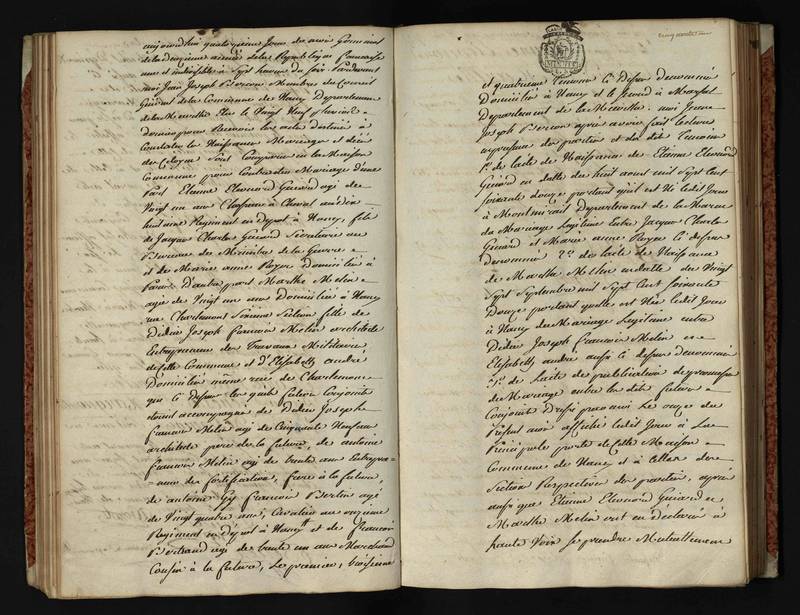 aujourdhuy quatorzieme Jour du mois Germinal
de la deuxieme année de la Republique francaise
une et indivisible a Sept heures du soir Pardevant
moi Jean Joseph Bercon Membre du Conseil
General de la Commune de Nancy Departement
de la Meurthe Elu le Vingt Neuf pluviose
dernier pour Recevoir les actes destinés à
Constater les Naissances Mariages et décès
des Citoyens Sont Comparus en la Maison
Commune pour Contracter Mariage d'une
Part Etienne Eleonord Guérard agé de
Vingt un ans Chasseur à Cheval au
huitieme Regiment en Depot à Nancy, fils
de Jacques Charles Guérard Secretaire au
Bureau du Ministre de la Guerre
et de Marie anne Royer Domiciliés à
Paris D'autre part Marthe Melin
agée de Vingt un ans Domiciliée à Nancy
rue Charlemont Section fille de
Didier Joseph francois Melin architecte
Entrepreneur des travaux Militaires
de cette Commune et d'Elisabeth andré
Domiciliés même rue de Charlemont
que Ci Dessus les quels futurs Conjoints
étoient accompagnés de Didier Joseph
francois Melin agé de Cinquante Neuf ans
architecte pere de la future, de antoine
francois Melin agé de trente ans Entrepre=
=neur des fortifications, frere à la future,
de antoine francois Bertin agé
de Vingt quatre ans, Cavalier au onzieme
Regiment en Depot à Nancy et de francois
Bertrand agé de trente un ans Marchand
Cousin à la future, Le premier, troisieme
cinquante un
et quatrieme temoins Ci Dessus denommés
Domiciliés à Nancy et le Second à Marsal
Departement de la Meurthe. moi Jean
Joseph Bercon après avoir fait lecture
en presence des parties et des dits temoins
1°. de l'acte de Naissance de Etienne Eleonord
Guérard en datte du huit aoust mil Sept Cent
soixante douze portant qu'il est Né le dit Jour
à Montmirail Departement de la Marne
du Mariage Legitime entre Jacques Charles
Guérard et Marie anne Royer Ci dessus
denommés 2°. de l'acte de Naissance
de Marthe Melin en datte du Vingt
Sept Septembre mil Sept Cent soixante
Douze portant qu'elle est Née le dit Jour
à Nancy du Mariage Legitime entre
Didier Joseph francois Melin et
Elisabeth andré aussi Ci dessus denommés
3°. de L'acte de publication de promesse
de Mariage entre les dits futurs
Conjoints Dressé par moi Le onze du
Present mois affiché le dit Jour à La
Principale porte de cette Maison
Commune de Nancy et à Celle des
Section Respective des parties, après
aussi que Etienne Eleonord Guérard et
Marthe Melin ont eu déclaré à
haute Voix Se prendre Mutuellement